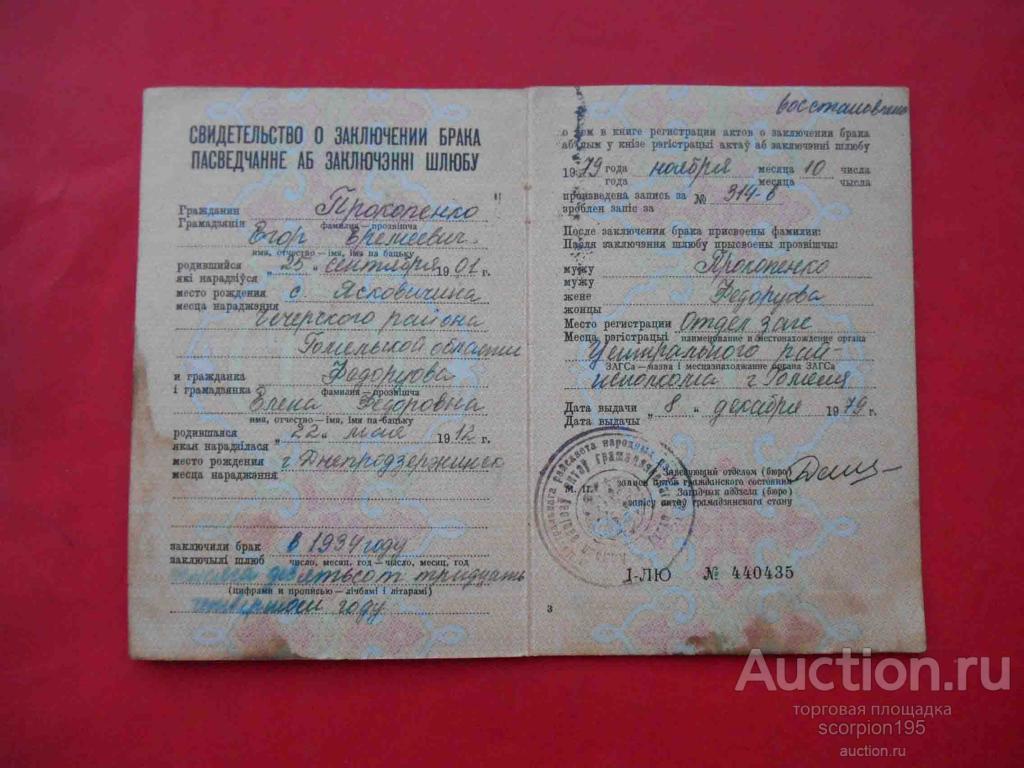 СВИДЕТЕЛЬСТВО О ЗАКЛЮЧЕНИИ БРАКА
ПАСВЕДЧАННЕ АБ ЗАКЛЮЧЭННІ ШЛЮБУ
Гражданин Прокопенко
Грамадзянін фамилия—прозвішча
Егор Еремеевич
имя, отчество—імя, імя па бацьку
родившийся „25„ сентября 1901 г.
які нарадзіўся
место рождения с. Ясковичина
месца нараджэння
Чечерского района
Гомельской области
и гражданка Федорцова
і грамадзянка фамилия—прозвішча
Елена Федоровна
имя, отчество—імя, імя па-бацьку
родившаяся „22„ мая 1912 г.
якая нарадзілася
место рождения г. Днепродзержинск
месца нараджэння
заключили брак в 1934 году
заключылі шлюб число, месяц, год—чысло, месяц, год
тысяча девятьсот тридцать
(цифрами и прописью—лічбамі і літарамі)
четвертом году
восстановлено
о чем в книге регистрации актов о заключении брака
аб чым у кнізе рэгістрацыі актаў аб заключэнні шлюбу
1979 года ноября месяца 10 числа
года месяца чысла
произведена запись за № 314-в
зроблен запіс за
После заключения брака присвоены фамилии:
Пасля заключэння шлюбу прысвоены прозвішчы:
мужу Прокопенко
мужу
жене Федорцова
жонцы
Место регистрации Отдел загс
Месца рэгістрацыі наименование и местонахождение органа
Центрального рай-
ЗАГСа—назва і месцазнаходжанне органа ЗАГСа
исполкома г Гомеля
Дата выдачи „8„ декабря 1979 г.
Дата выдачы
Заведующий отделом (бюро)
М. П. записи актов гражданского состояния
Загадчык аддзела (бюро)
запісу актаў грамадзянскага стану
I-ЛЮ № 440435
3
Auction.ru
торговая площадка
scorpion195
auction.ru